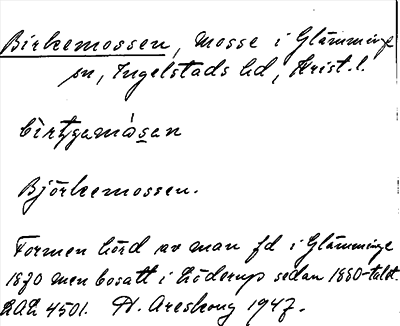 Birkemossen, mosse i Glämminge
sn, Ingelstads hd, Krist. l.
Björkemossen.
Formen hörd av man fd i Glämminge
1870 men bosatt i Löderup sedan 1880-talet.
4501. H. Areskoug 1947.